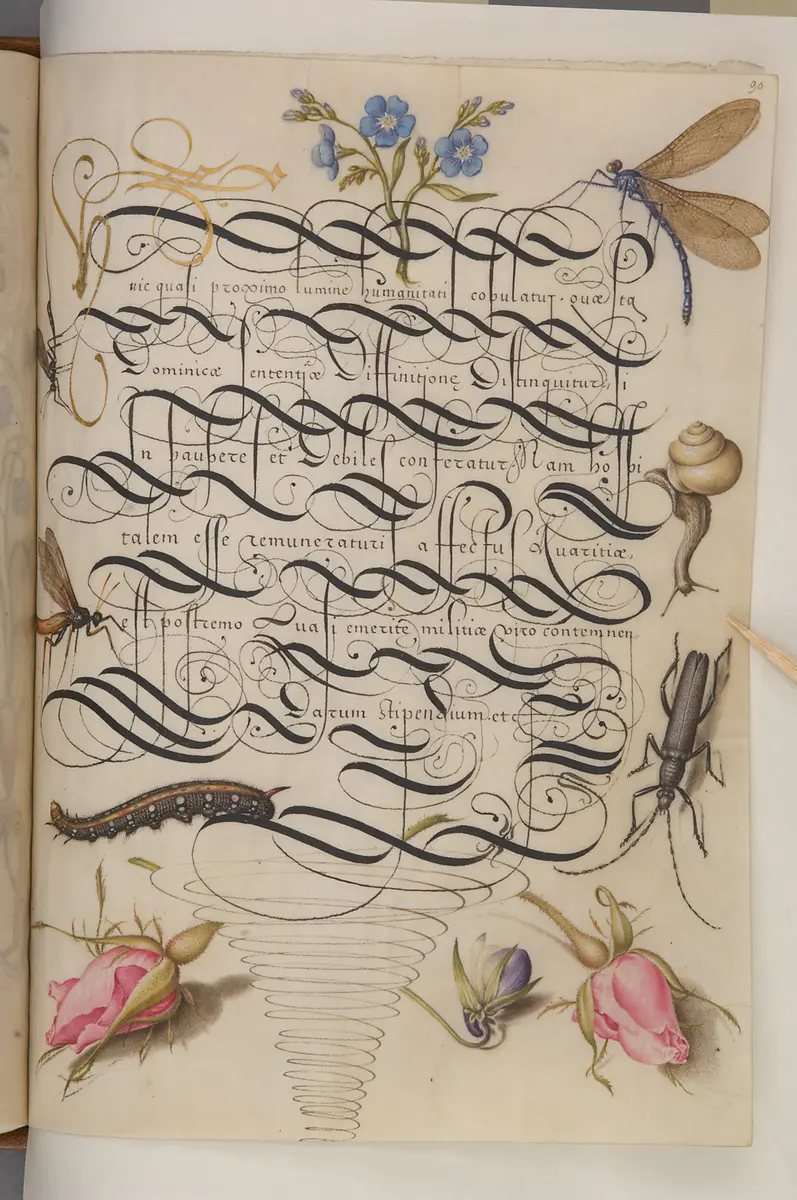 90
Huic quasi proximo lumine humanitati copulatur. quæ ita
Dominicæ sententiæ Diffinitione Distinguitur, si
In paupere et Debiles conferatur Nam hospi
talem esse remuneraturi affectus Avaritiæ,
est postremo Quasi emerite militiæ viro contemnen
Datum stipendium. etc